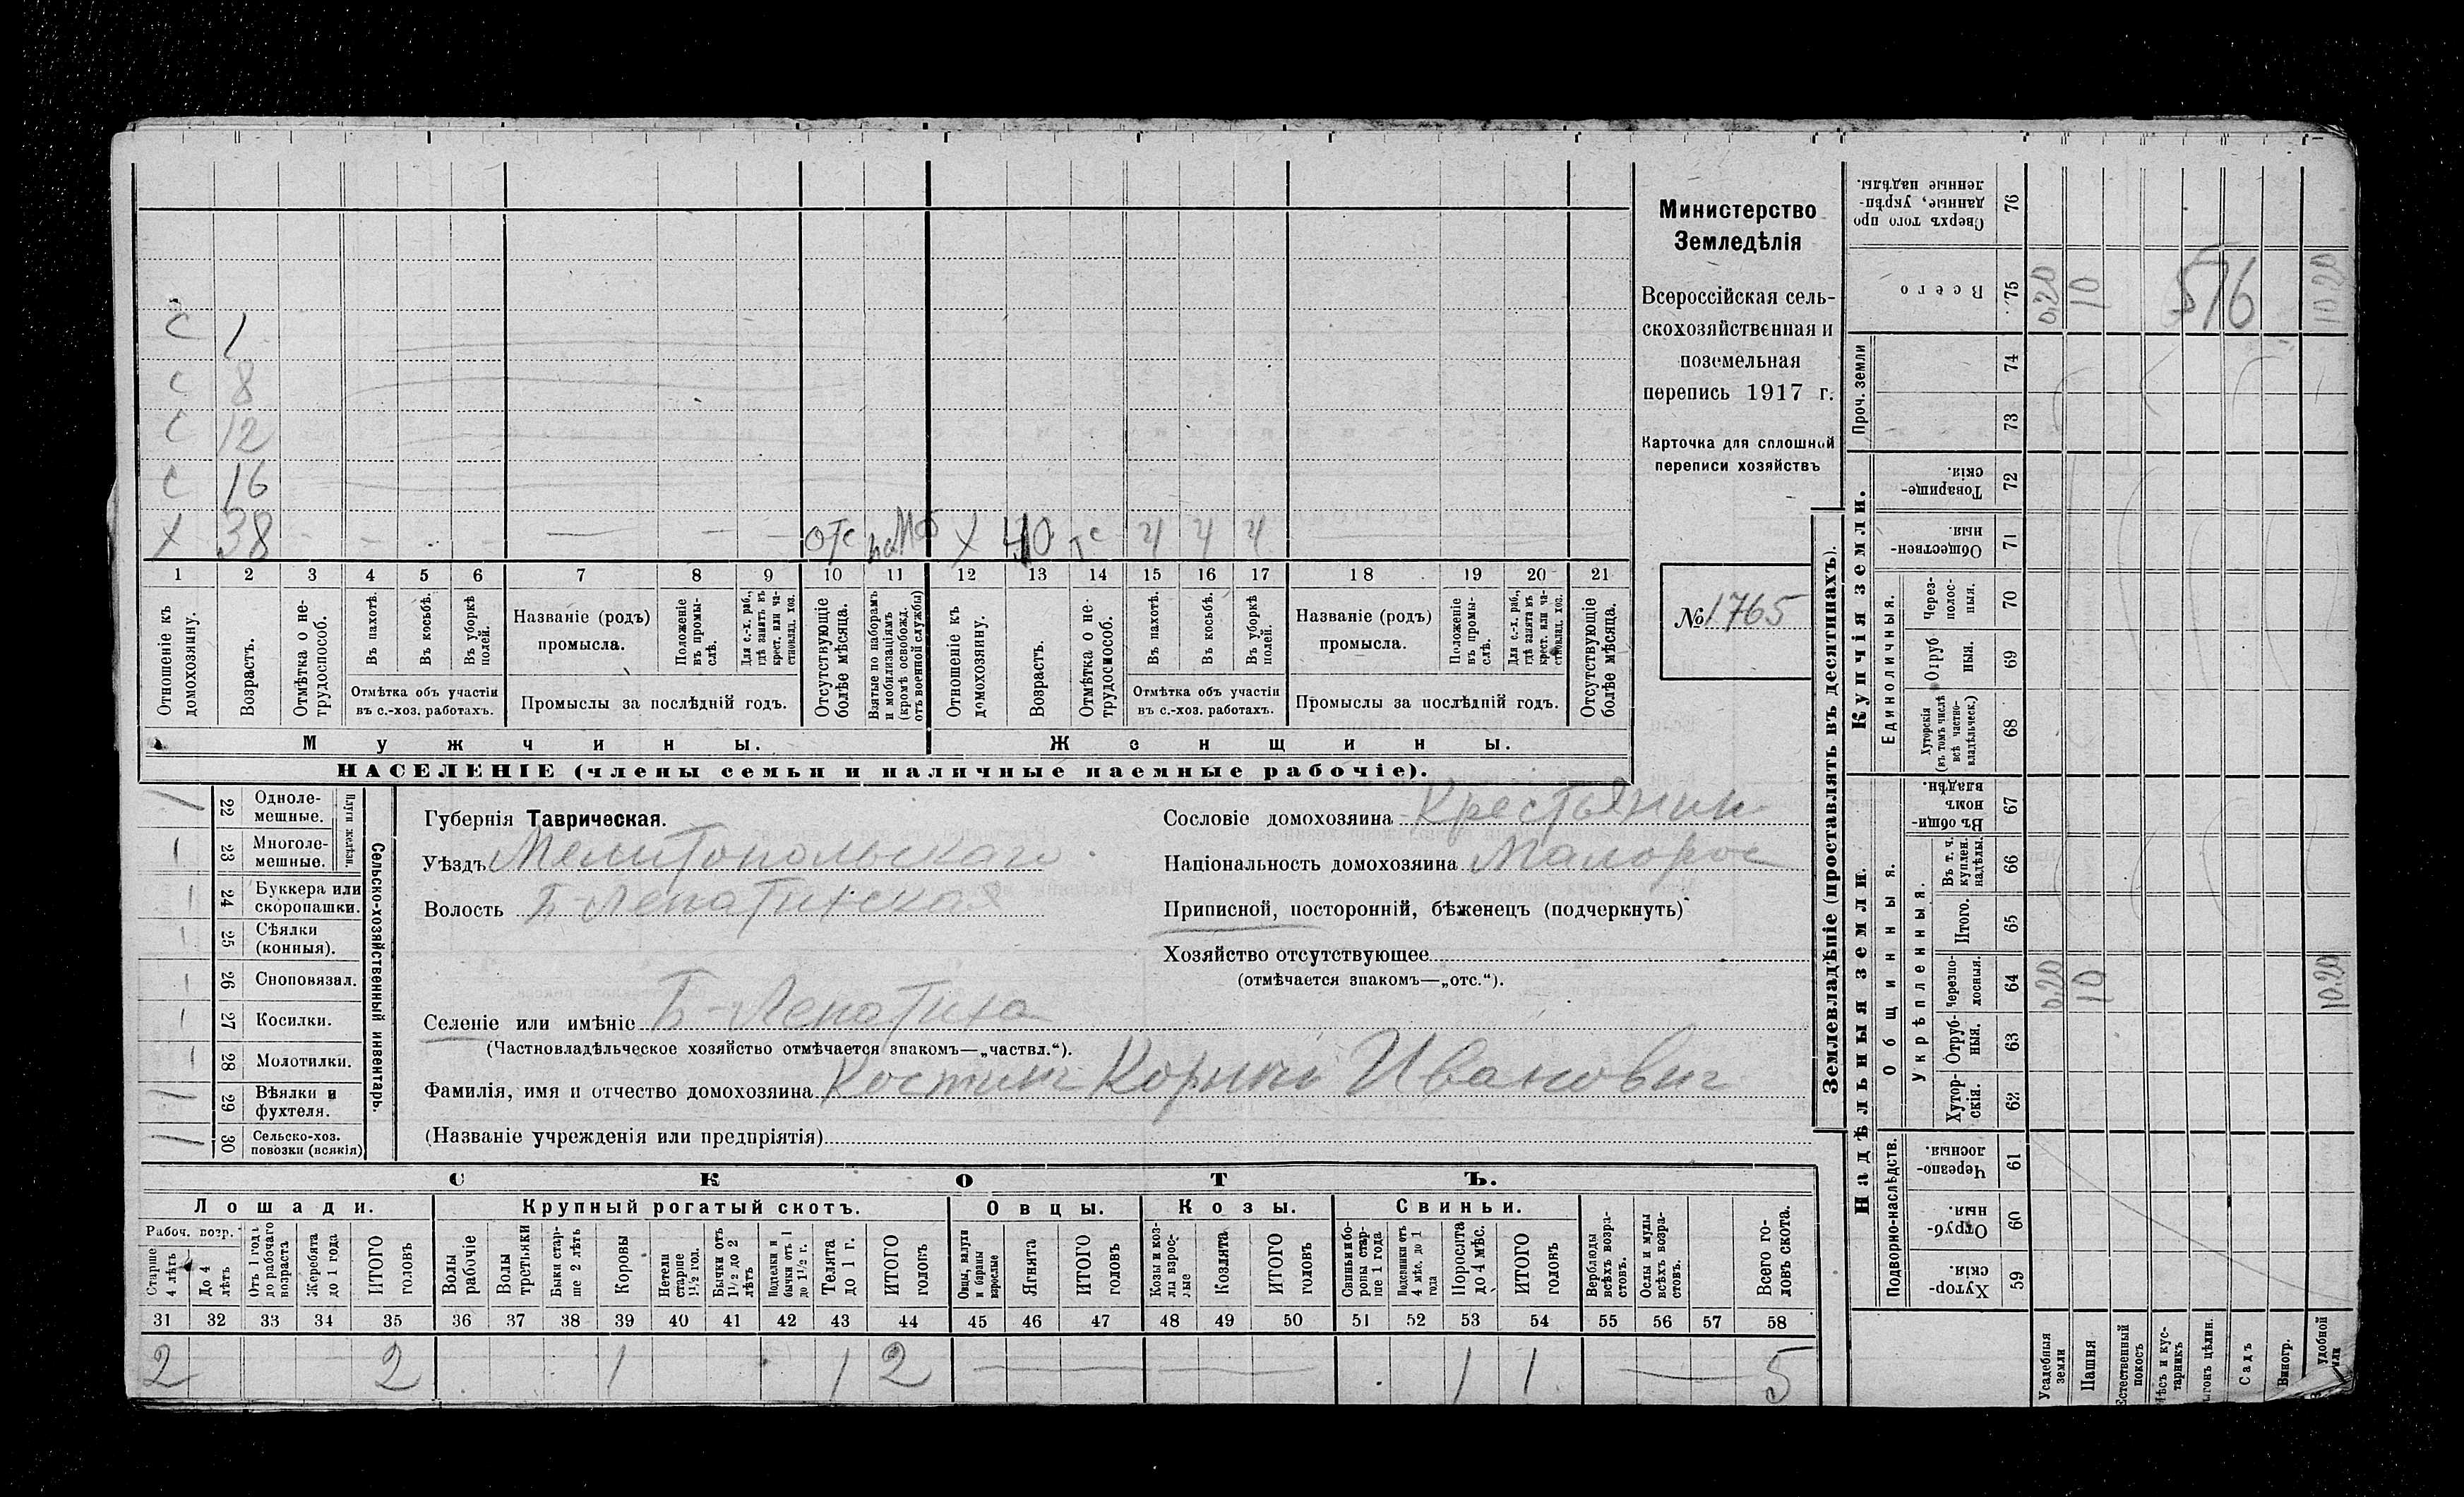 С 1
С 8
С 12
С 16
Х 38 — — — отс по моб Х 40 ч ч ч
1 2 3 4 5 6 7 8 9 10 11 12 13 14 15 16 17 18 19 20 21
Отношеніе къ домохозяину.
Возрастъ.
Отмѣтка о нетрудоспособ.
Въ пахотѣ.
Въ косьбѣ.
Въ уборкѣ полей.
Отмѣтка объ участіи въ с.-хоз. работахъ.
Названіе (родъ) промысла.
Положеніе въ промыслѣ.
Для с.-х. раб., гдѣ занятъ въ крест. или частновлад. хоз.
Промыслы за послѣдній годъ.
Отсутствующіе болѣе мѣсяца.
Взятые по наборамъ и мобилизаціямъ (кромѣ освобожд. отъ военной службы)
Отношеніе къ домохозяину.
Возрастъ.
Отмѣтка о нетрудоспособ.
Въ пахотѣ.
Въ косьбѣ.
Въ уборкѣ полей.
Отмѣтка объ участіи въ с.-хоз. работахъ.
Названіе (родъ) промысла.
Положеніе въ промыслѣ.
Для с.-х. раб., гдѣ занята въ крест. или частновлад. хоз.
Промыслы за послѣдній годъ.
Отсутствующіе болѣе мѣсяца.
Мужчины.
Женщины.
НАСЕЛЕНІЕ (члены семьи и наличные наемные рабочіе).
Министерство
Земледѣлія
Всероссійская сель-
скохозяйственная и
поземельная
перепись 1917 г.
Карточка для сплошной
переписи хозяйствъ
№ 1765
Сельско-хозяйственный инвентарь.
Плуги желѣзн.
22 Одноле-
мешные.
23 Многоле-
мешные.
24 Буккера или
скоропашки.
25 Сѣялки
(конныя).
26 Сноповязал.
27 Косилки.
28 Молотилки.
29 Вѣялки и
фухтеля.
30 Сельско-хоз.
повозки (всякія)
Губернія Таврическая.
Уѣздъ Мелитопольскаго
Волость Б-Лепатихская
Селеніе или имѣніе Б-Лепатиха
(Частновладѣльческое хозяйство отмѣчается знакомъ—„частвл.“).
Сословіе домохозяина Крестьянин
Національность домохозяина Малорос
Приписной, посторонній, бѣженецъ (подчеркнуть)
Хозяйство отсутствующее
(отмѣчается знакомъ—„отс.“).
Фамилія, имя и отчество домохозяина Костин Корній Иванович
(Названіе учрежденія или предпріятія)
СКОТЪ.
Лошади.
Рабоч. возр.
Старше 4 лѣтъ
До 4 лѣтъ
Отъ 1 года до рабочаго возраста
Жеребята до 1 года
ИТОГО головъ
Крупный рогатый скотъ.
Волы рабочіе
Волы третьяки
Быки старше 2 лѣтъ
Коровы
Нетели старше 1½ год.
Бычки отъ 1½ до 2 лѣтъ
Подтелки и бычки отъ 1 до 1½ г.
Телята до 1 г.
ИТОГО головъ
Овцы.
Овцы, валухи и бараны взрослые
Ягнята
ИТОГО головъ
Козы.
Козы и козлы взрослые
Козлята
ИТОГО головъ
Свиньи.
Свиньи и боровы старше 1 года
Подсвинки отъ 4 мѣс. до 1 года
Поросята до 4 мѣс.
ИТОГО головъ
Верблюды всѣхъ возрастовъ.
Ослы и мулы всѣхъ возрастовъ.
Всего головъ скота.
31 32 33 34 35 36 37 38 39 40 41 42 43 44 45 46 47 48 49 50 51 52 53 54 55 56 57 58
2 2 1 1 2 — — 1 1 — 5
Землевладѣніе (проставлять въ десятинахъ).
Купчія земли.
Надѣльныя земли.
Проч. земли
Единоличныя.
Общинныя.
Укрѣпленныя.
Подворно-наслѣдств.
Сверхъ того проданные, укрѣпленные надѣлы. 76
Всего 75 0,20 10 576 10 20
74
73
Товарищескія. 72
Общественныя. 71
Черезполосныя. 70
Отрубныя. 69
Хуторскія (въ томъ числѣ всѣ частновладѣльческ.) 68
Въ общинномъ владѣн. 67
Въ т. ч. куплен. надѣлы. 66
Итого. 65
Черезполосныя. 64 0,20 10 10.20
Отрубныя. 63
Хуторскія. 62
Черезполосныя. 61
Отрубныя. 60
Хуторскія. 59
Усадебныя земли
Пашня
Естественный покосъ
Лѣсъ и кустарникъ
Садъ
Виногр.
удобной